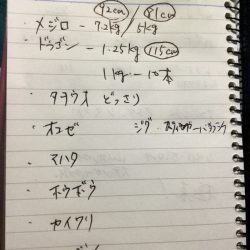 92cm 81cm
・メジロ - 7.2kg / 5kg
・ドラゴン - 1.25kg 115cm
1kg - 12本
・タチウオ どっさり
・オコゼ ジグ
・マハタ
・ホウボウ
・カイワリ